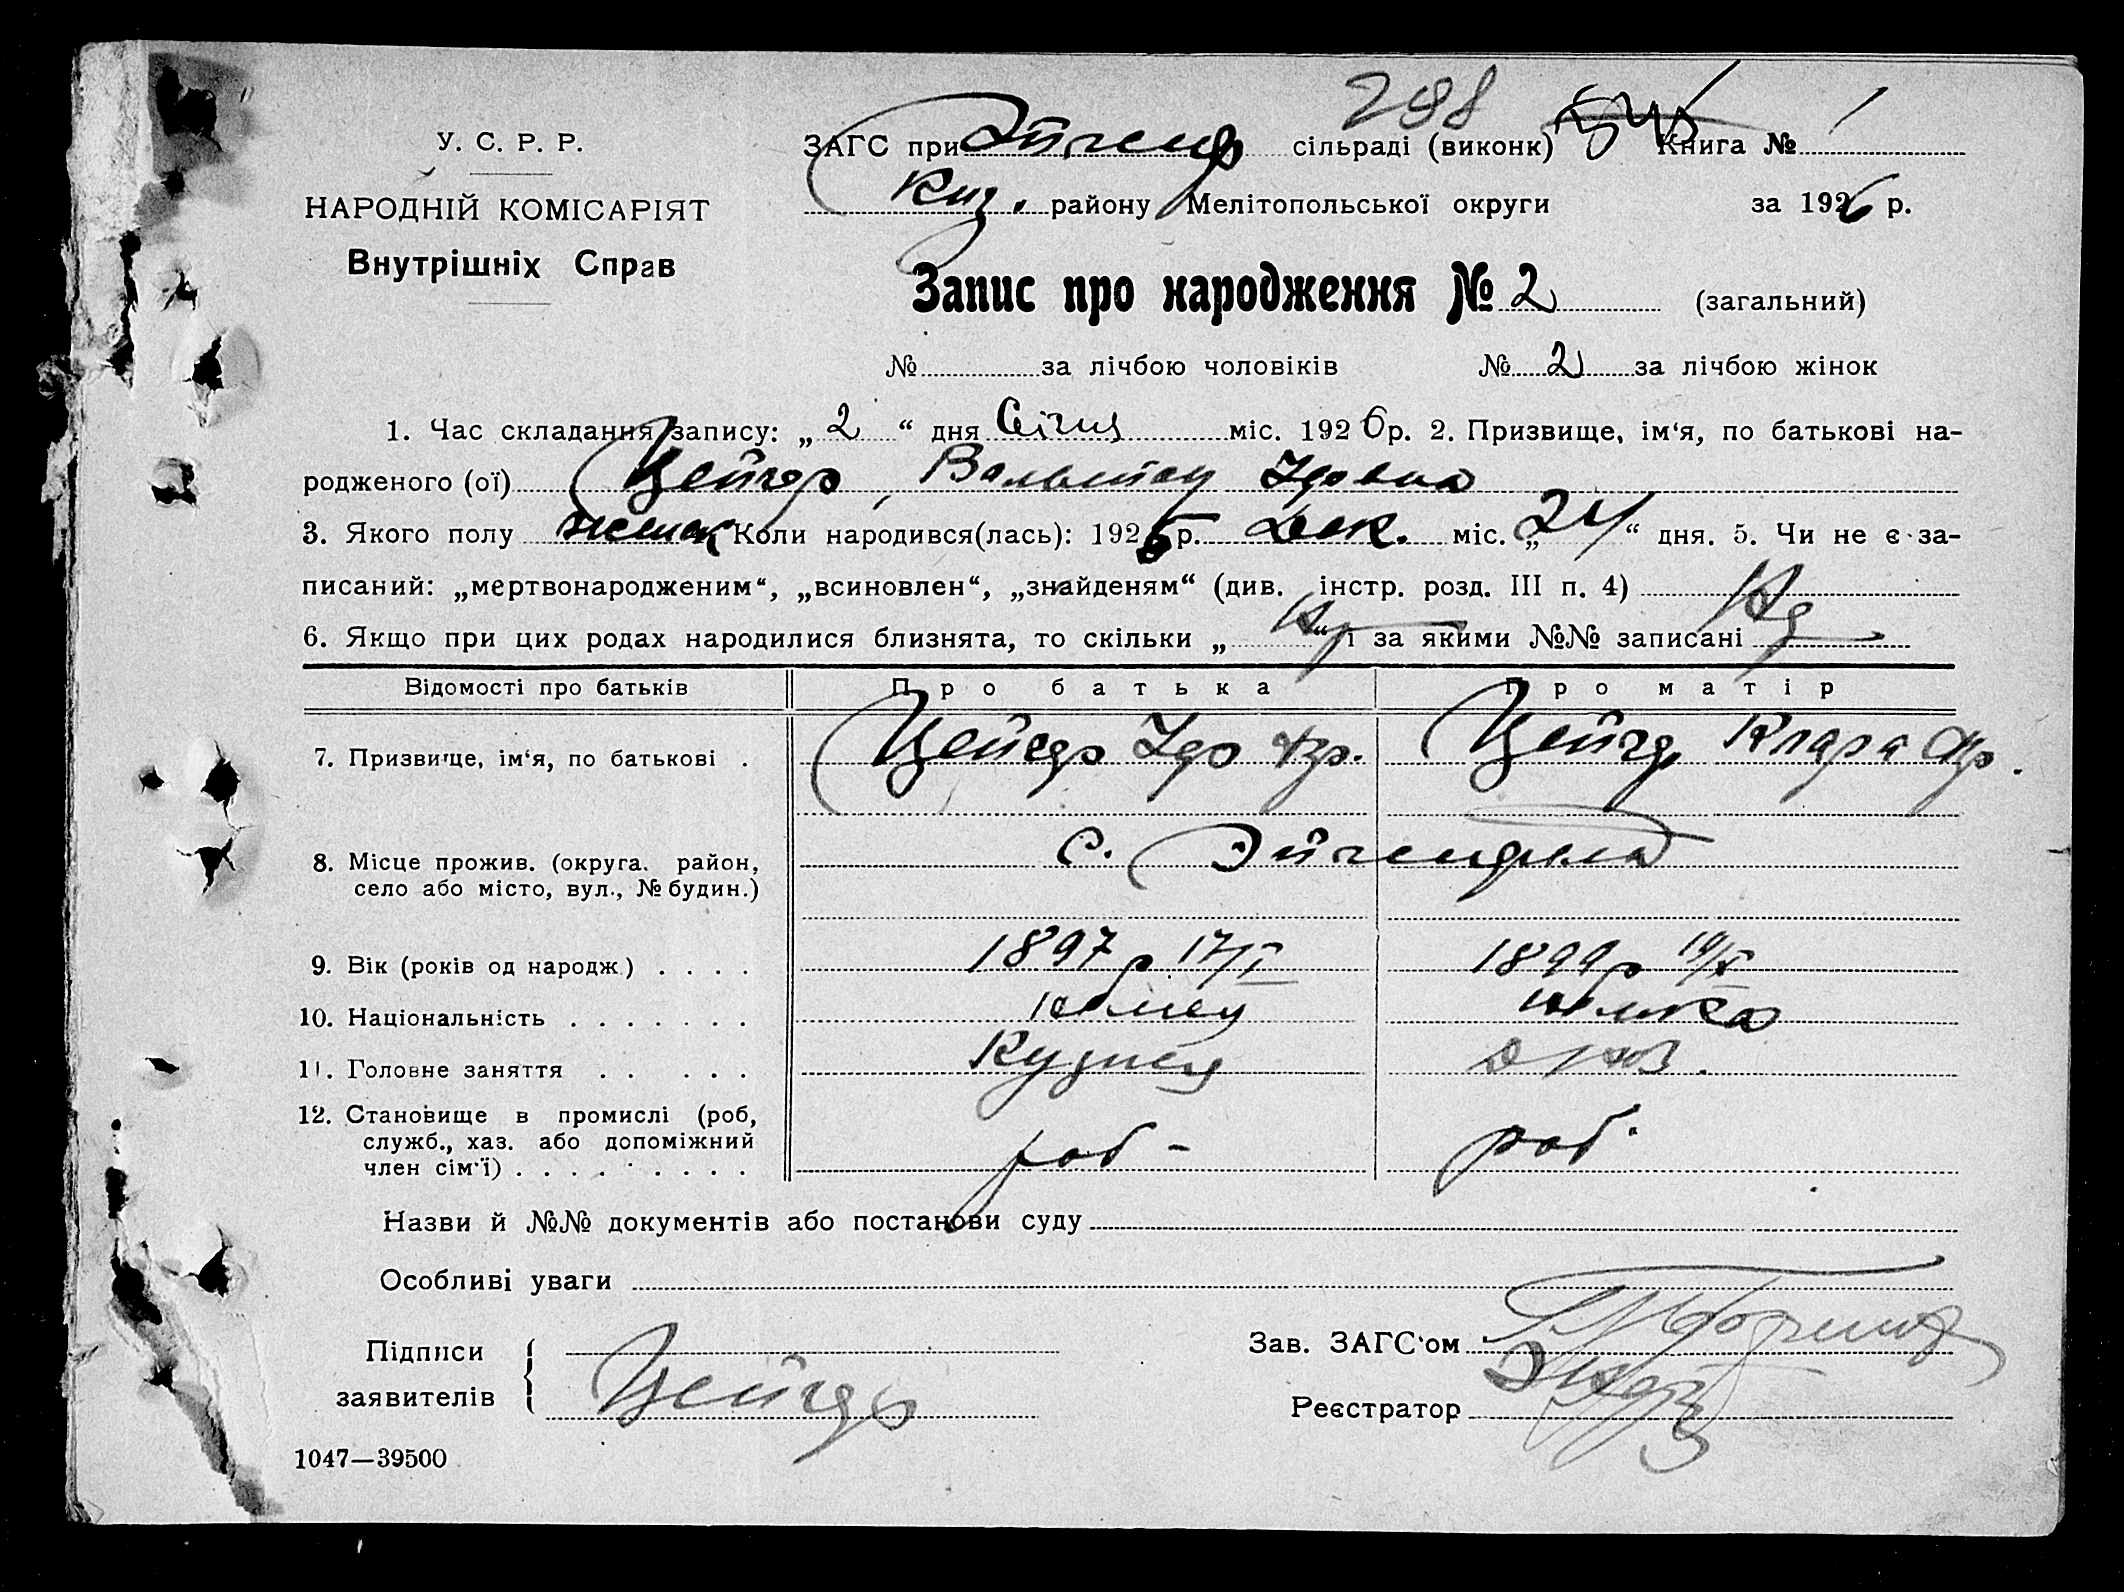 298
У. С. Р. Р.
ЗАГС при Эйгенф сільраді (виконк) Книга № 1
НАРОДНІЙ КОМІСАРІЯТ
району Мелітопольської округи за 1926 р.
Внутрішніх Справ
Запис про народження № 2 (загальний)
№ за лічбою чоловіків № 2 за лічбою жінок
1. Час складання запису: „ 2 “ дня Січня міс. 1926 р. 2. Призвище, ім‘я, по батькові на-
родженого (ої) Цейгер, Вальтєу Удовна
3. Якого полу Коли народився(лась): 1925 р. Дек. міс. „ 24 “ дня. 5. Чи не є за-
писаний: „мертвонародженим“, „всиновлен“, „знайденям“ (див. інстр. розд. III п. 4)
6. Якщо при цих родах народилися близнята, то скільки „ “ і за якими №№ записані
Відомості про батьків Про батька Про матір
7. Призвище, ім‘я, по батькові . Цейгер Удо Клара
8. Місце прожив. (округа. район, с. Эйгенфельд
село або місто, вул., № будин.)
9. Вік (років од народж.) . . . . 1897 р 17/I 1899 р
10. Національність . . . . . . . німец німка
11. Головне заняття . . . . . Кузнец
12. Становище в промислі (роб,
служб., хаз. або допоміжний
член сім‘ї) . . . . . . . . . роб - роб.
Назви й №№ документів або постанови суду
Особливі уваги
Підписи
заявителів Цейгер
Зав. ЗАГС‘ом
Реєстратор
1047—39500